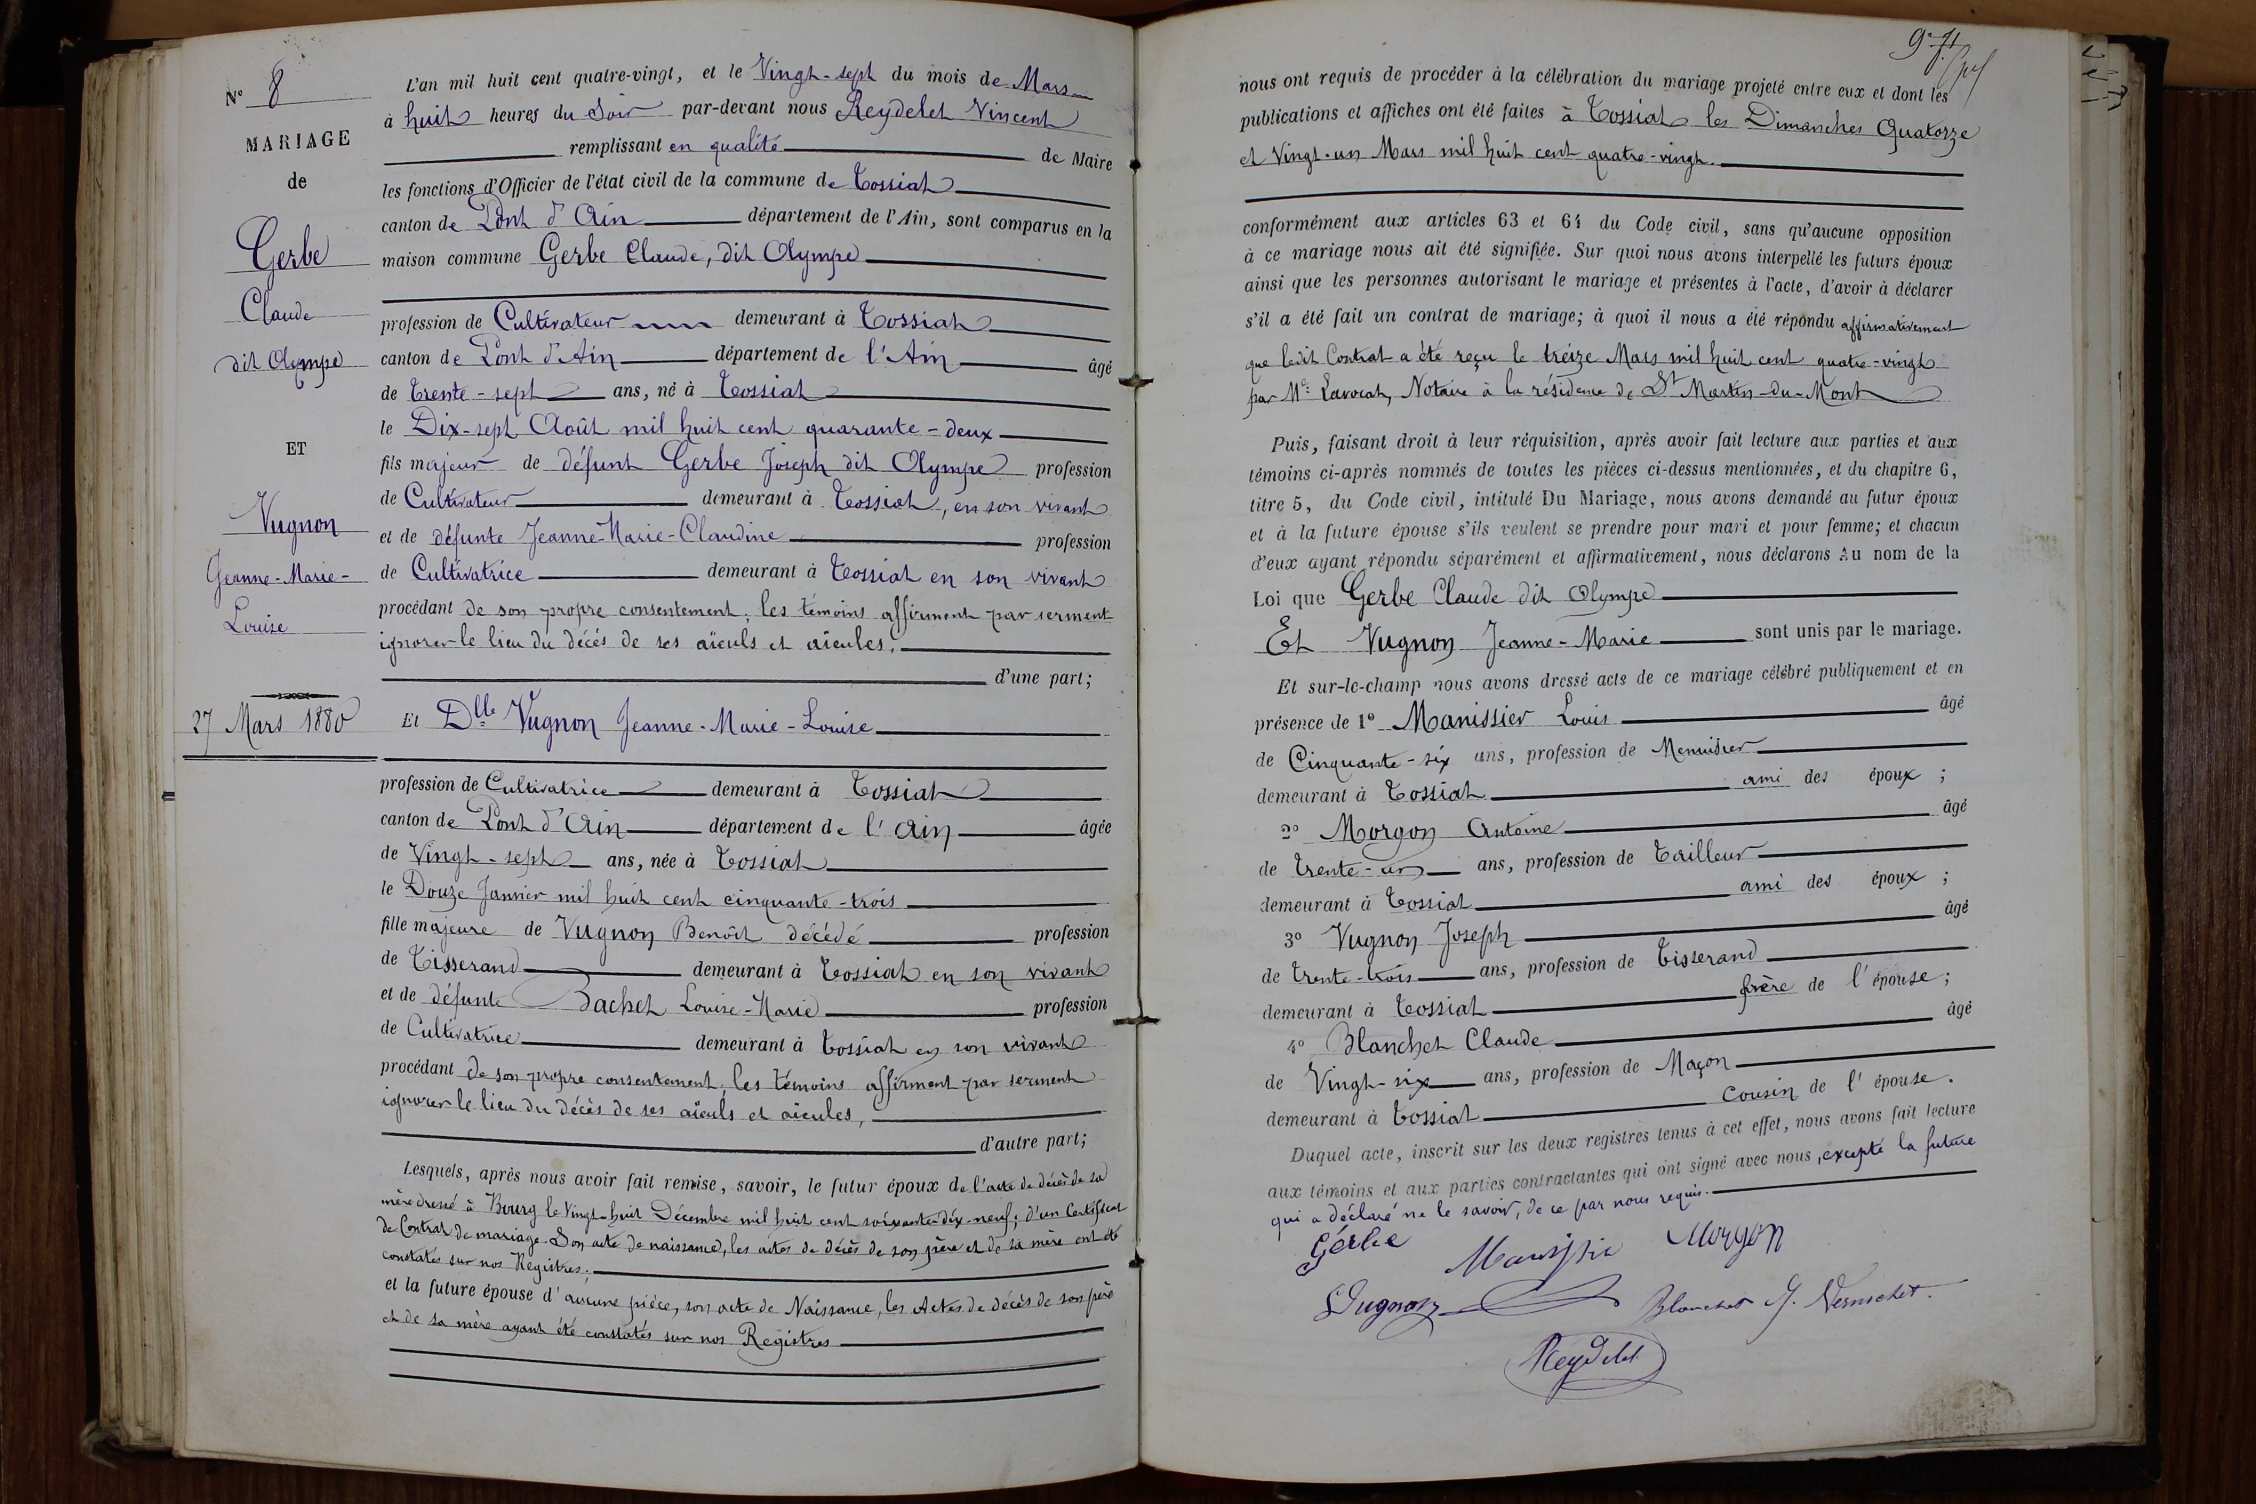 N° 8
MARIAGE
de
Gerbe
Claude
dit Olympe
ET
Vugnon
Jeanne-Marie-
Louise
27 Mars 1880
L'an mil huit cent quatre-vingt, et le Vingt-sept du mois de Mars
à huit heures du Soir par-devant nous Reydelet Vincent
remplissant en qualité de Maire
les fonctions d'Officier de l'état civil de la commune de Tossiat
canton de Pont d'Ain département de l'Ain, sont comparus en la
maison commune Gerbe Claude, dit Olympe
profession de Cultivateur demeurant à Tossiat
canton de Pont d'Ain département de l'Ain âgé
de trente-sept ans, né à Tossiat
le Dix-sept Août mil huit cent quarante-deux
fils majeur de défunt Gerbe Joseph dit Olympe profession
de Cultivateur demeurant à Tossiat, en son vivant
et de défunte Jeanne-Marie-Claudine profession
de Cultivatrice demeurant à Tossiat en son vivant
procédant de son propre consentement; les témoins affirment par serment
ignorer le lieu du décès de ses aïeuls et aïeules;
d'une part;
Et Dlle Vugnon Jeanne-Marie-Louise
profession de Cultivatrice demeurant à Tossiat
canton de Pont d'Ain département de l'Ain âgée
de Vingt-sept ans, née à Tossiat
le Douze Janvier mil huit cent cinquante-trois
fille majeure de Vugnon Benoît décédé profession
de Tisserand demeurant à Tossiat en son vivant
et de défunte Bachet Louise-Marie profession
de Cultivatrice demeurant à Tossiat en son vivant
procédant de son propre consentement; les témoins affirment par serment
ignorer le lieu du décès de ses aïeuls et aïeules,
d'autre part;
Lesquels, après nous avoir fait remise, savoir, le futur époux de l'acte de décès de sa
mère dressé à Bourg le Vingt-huit Décembre mil huit cent soixante-dix-neuf; d'un Certificat
de Contrat de mariage. Son acte de naissance, les actes de décès de son père et de sa mère ont été
constatés sur nos Registres;
et la future épouse d'aucune pièce, son acte de Naissance, les Actes de décès de son père
et de sa mère ayant été constatés sur nos Registres
9e ft
nous ont requis de procéder à la célébration du mariage projeté entre eux et dont les
publications et affiches ont été faites à Tossiat les Dimanches Quatorze
et Vingt-un Mars mil huit cent quatre-vingt.
conformément aux articles 63 et 64 du Code civil, sans qu'aucune opposition
à ce mariage nous ait été signifiée. Sur quoi nous avons interpellé les futurs époux
ainsi que les personnes autorisant le mariage et présentes à l'acte, d'avoir à déclarer
s'il a été fait un contrat de mariage; à quoi il nous a été répondu affirmativement
que ledit Contrat a été reçu le treize Mars mil huit cent quatre-vingt
par Me Lavocat, Notaire à la résidence de St Martin-du-Mont
Puis, faisant droit à leur réquisition, après avoir fait lecture aux parties et aux
témoins ci-après nommés de toutes les pièces ci-dessus mentionnées, et du chapitre 6,
titre 5, du Code civil, intitulé Du Mariage, nous avons demandé au futur époux
et à la future épouse s'ils veulent se prendre pour mari et pour femme; et chacun
d'eux ayant répondu séparément et affirmativement, nous déclarons Au nom de la
Loi que Gerbe Claude dit Olympe
Et Vugnon Jeanne-Marie sont unis par le mariage.
Et sur-le-champ nous avons dressé acte de ce mariage célébré publiquement et en
présence de 1° Manissier Louis âgé
de Cinquante-six ans, profession de Menuisier
demeurant à Tossiat ami des époux;
2° Morgon Antoine âgé
de trente-un ans, profession de Tailleur
demeurant à Tossiat ami des époux;
3° Vugnon Joseph âgé
de trente-trois ans, profession de Tisserand
demeurant à Tossiat frère de l'épouse;
4° Blanchet Claude âgé
de Vingt-six ans, profession de Maçon
demeurant à Tossiat cousin de l'épouse.
Duquel acte, inscrit sur les deux registres tenus à cet effet, nous avons fait lecture
aux témoins et aux parties contractantes qui ont signé avec nous, excepté la future
qui a déclaré ne le savoir, de ce par nous requis.
Gerbe Manissier Morgon
Vugnon Blanchet
Reydelet